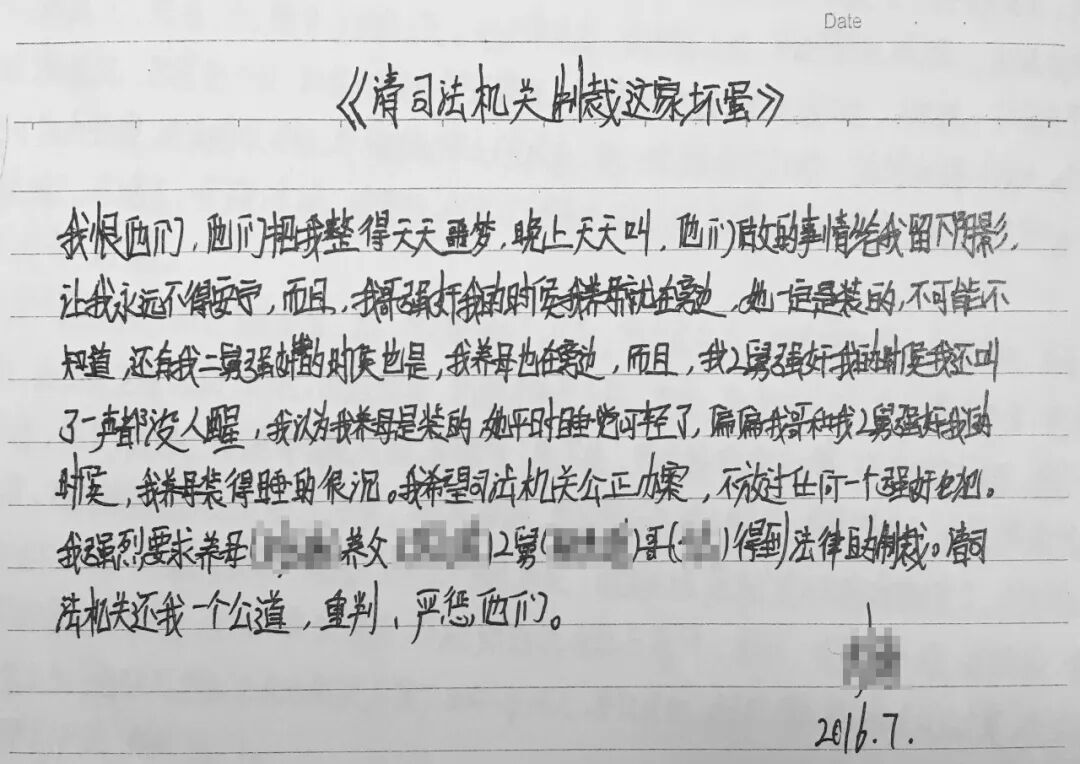 Date
《请司法机关制裁这家坏蛋》
我恨他们，他们把我整得天天噩梦，晚上天天叫，他们做的事情给我留下阴影，
让我永远不得安宁，而且，我哥强奸我的时候我养母就在旁边，她一定是装的，不可能不
知道，还有我二舅强奸的时候也是，我养母也在旁边，而且，我2舅强奸我的时候我还叫
了一声都没人醒，我认为我养母是装的，她平时睡觉可轻了，偏偏我哥和我2舅强奸我的
时候，我养母装得睡的很沉。我希望司法机关公正办案，不放过任何一个强奸犯。
我强烈要求养母( 养父 )2舅( )哥( )得到法律的制裁。请司
法机关还我一个公道，重判，严惩他们。
2016.7.